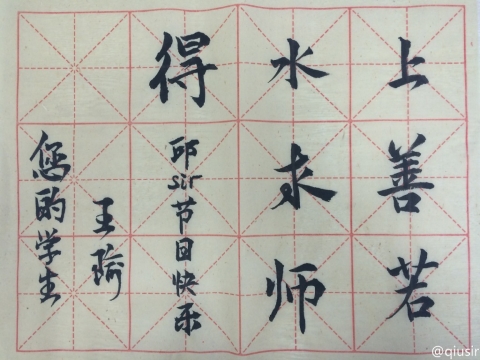 上善若
水求师
得
邱sir节日快乐
您的学生
王瑜
@qiusir